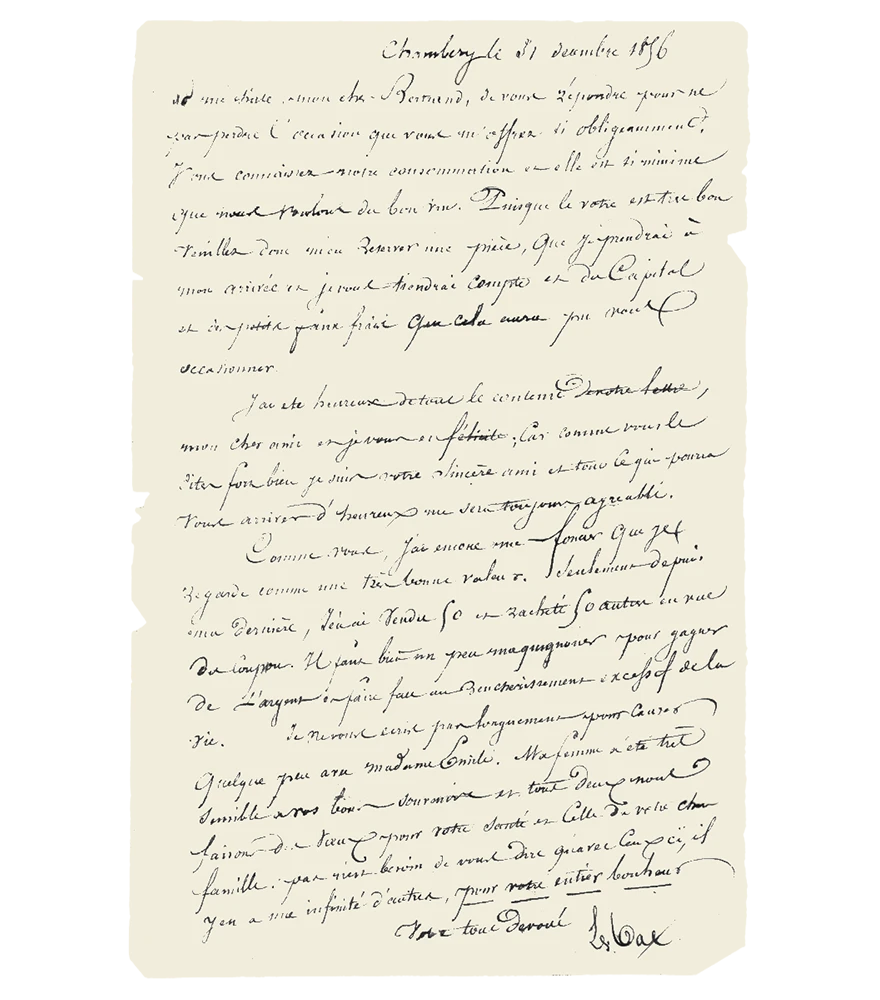 Chambery le 31 decembre 1856
me hâte, mon cher Bertrand, de vous répondre pour ne
pas perdre l'occasion que vous m'offrez si obligeamment.
Vous connaissez notre consommation et elle est si minime
que nous voulons du bon vin. Puisque le votre est très bon
Veuillez donc m'en reserver une pièce, que je prendrai à
mon arrivée et je vous tiendrai compte et du Capital
et des petits faux frais que cela aura pu vous
occasionner
J'ai été heureux de tout le contenu de votre lettre,
mon cher ami et je vous en félicite; Car comme vous le
dites fort bien je suis votre sincère ami et tout ce qui pourra
Vous arriver d'heureux me sera toujours agreable.
Comme vous, j'ai encore une foncier que je
regarde comme une très bonne valeur. Seulement depuis
ma dernière, j'en ai vendu 50 et racheté 50 autres en vue
du coupon. Il faut bien un peu maquignoner pour gagner
de l'argent et faire face au rencherissement excessif de la
vie. Je ne vous ecris pas longuement pour causer
quelque peu avec madame Emilie. Ma femme a été très
sensible a vos bons souvenirs et tous deux nous
faisons des voeux pour votre santé et celle de votre chere
famille. pas n'est besoin de vous dire qu'avec ceux ci, il
y en a une infinité d'autres, pour votre entier bonheur
Votre tout devoué